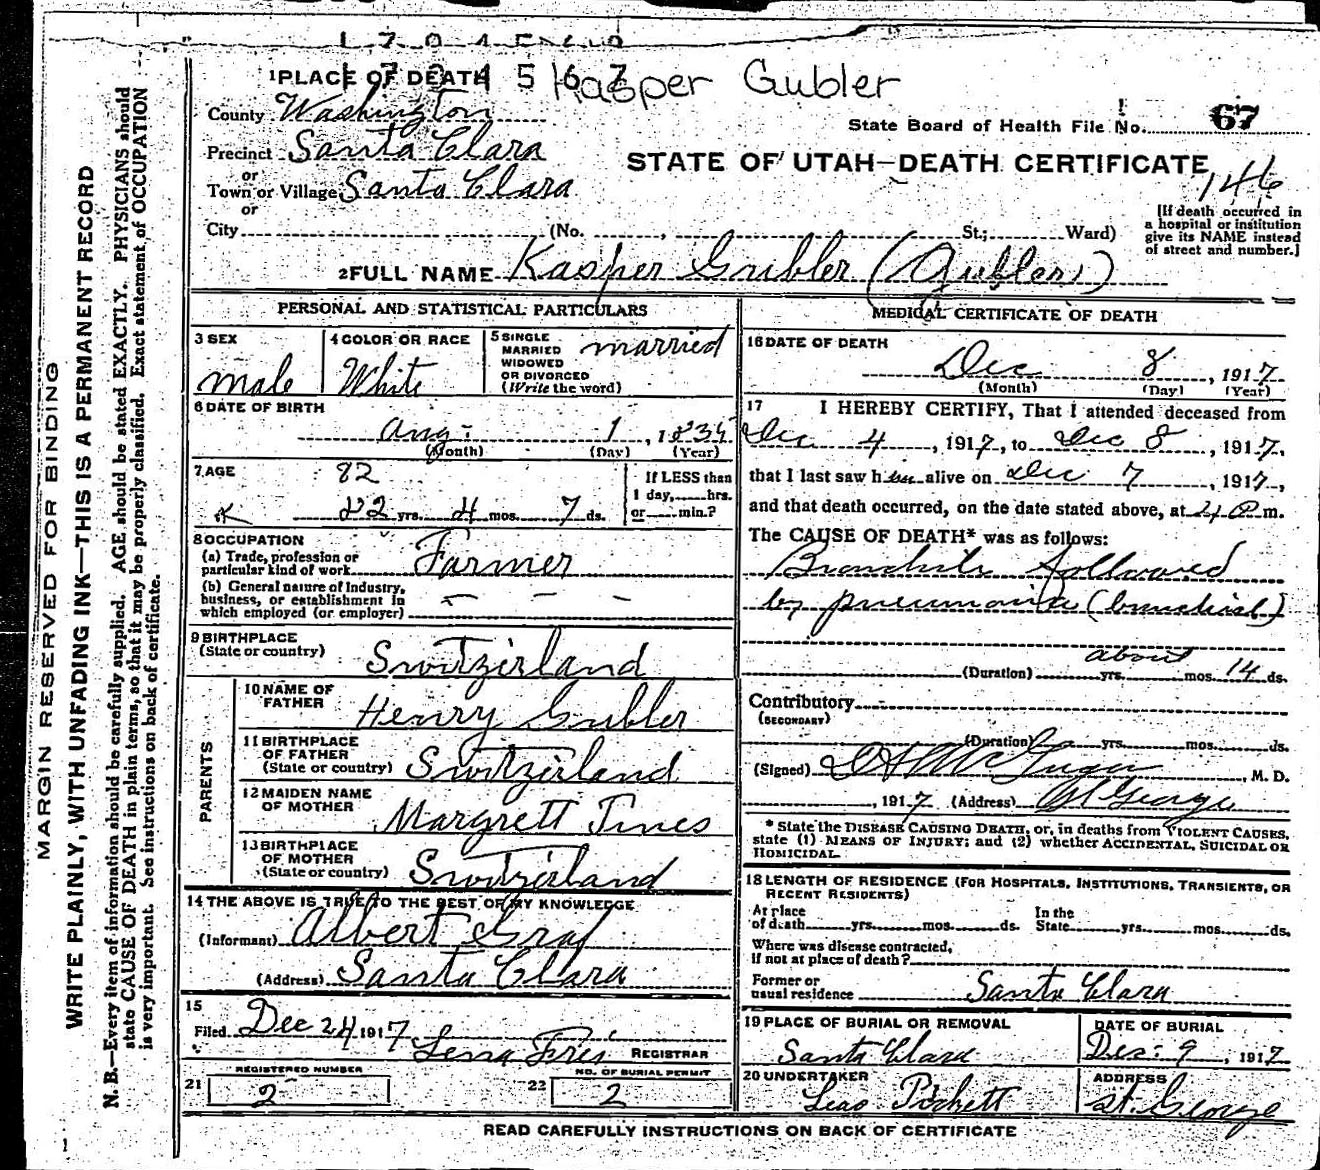 1704567
Kasper Gubler
1 PLACE OF DEATH
County Washington
State Board of Health File No. 67
Precinct Santa Clara
or
Town or Village Santa Clara
or
STATE OF UTAH—DEATH CERTIFICATE
146
City (No. , St.; Ward)
[If death occurred in
a hospital or institution
give its NAME instead
of street and number.]
2 FULL NAME Kasper Gubler (Gubler)
PERSONAL AND STATISTICAL PARTICULARS
3 SEX
male
4 COLOR OR RACE
White
5 SINGLE
MARRIED
WIDOWED
OR DIVORCED
(Write the word)
married
6 DATE OF BIRTH
Aug. 1, 1835
(Month) (Day) (Year)
7 AGE
82
82 yrs. 4 mos. 7 ds.
If LESS than
1 day, hrs.
or min.?
8 OCCUPATION
(a) Trade, profession or
particular kind of work Farmer
(b) General nature of industry,
business, or establishment in
which employed (or employer) — — —
9 BIRTHPLACE
(State or country) Switzirland
PARENTS
10 NAME OF
FATHER Henry Gubler
11 BIRTHPLACE
OF FATHER
(State or country) Switzirland
12 MAIDEN NAME
OF MOTHER Margrett
13 BIRTHPLACE
OF MOTHER
(State or country) Switzirland
14 THE ABOVE IS TRUE TO THE BEST OF MY KNOWLEDGE
(Informant) Albert Graf
(Address) Santa Clara
15
Filed Dec 24 1917 REGISTRAR
REGISTERED NUMBER
21 2
NO. OF BURIAL PERMIT
22 2
MEDICAL CERTIFICATE OF DEATH
16 DATE OF DEATH
Dec 8, 1917
(Month) (Day) (Year)
17 I HEREBY CERTIFY, That I attended deceased from
Dec 4, 1917, to Dec 8, 1917,
that I last saw him alive on Dec 7, 1917,
and that death occurred, on the date stated above, at 4 P m.
The CAUSE OF DEATH* was as follows:
Bronchitis followed
by pneumonia (bronchial)
about
(Duration) yrs. mos. 14 ds.
Contributory
(SECONDARY)
(Duration) yrs. mos. ds.
(Signed) , M. D.
, 1917 (Address) St George
* State the DISEASE CAUSING DEATH, or, in deaths from VIOLENT CAUSES,
state (1) MEANS OF INJURY; and (2) whether ACCIDENTAL, SUICIDAL OR
HOMICIDAL.
18 LENGTH OF RESIDENCE (FOR HOSPITALS, INSTITUTIONS, TRANSIENTS, OR
RECENT RESIDENTS)
At place
of death yrs. mos. ds.
In the
State yrs. mos. ds.
Where was disease contracted,
if not at place of death?
Former or
usual residence Santa Clara
19 PLACE OF BURIAL OR REMOVAL
Santa Clara
DATE OF BURIAL
Dec. 9, 1917
20 UNDERTAKER
ADDRESS
St. George
READ CAREFULLY INSTRUCTIONS ON BACK OF CERTIFICATE
MARGIN RESERVED FOR BINDING
WRITE PLAINLY, WITH UNFADING INK—THIS IS A PERMANENT RECORD
N. B.—Every item of information should be carefully supplied. AGE should be stated EXACTLY. PHYSICIANS should
state CAUSE OF DEATH in plain terms, so that it may be properly classified. Exact statement of OCCUPATION
is very important. See instructions on back of certificate.